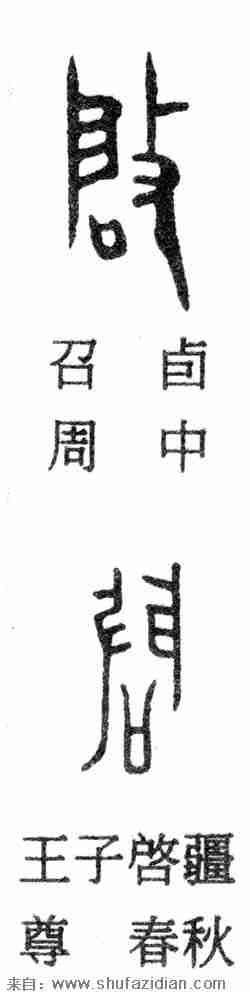 啓
召卣
周中
啓
王子啓疆
尊 春秋
来自：www.shufazidian.com